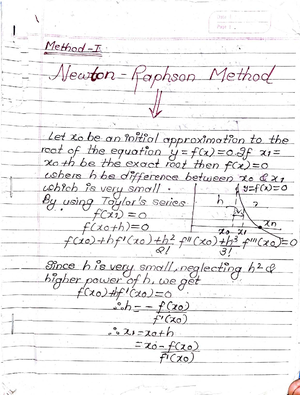 Method-I
Newton-Raphson Method
⇓
Let x0 be an initial approximation to the
root of the equation y=f(x)=0. If x1=
x0+h be the exact root then f(x)=0
where h be difference between x0 & x1
which is very small.
By using Taylor's series
f(x1)=0
f(x0+h)=0
f(x0)+hf'(x0)+h²/2! f''(x0)+h³/3! f'''(x0)=0
y=f(x)=0
h
x0 x1
xn
Since h is very small, neglecting h² &
higher power of h, we get
f(x0)+f'(x0)=0
∴h=-f(x0)/f'(x0)
∴x1=x0+h
=x0-f(x0)/f'(x0)